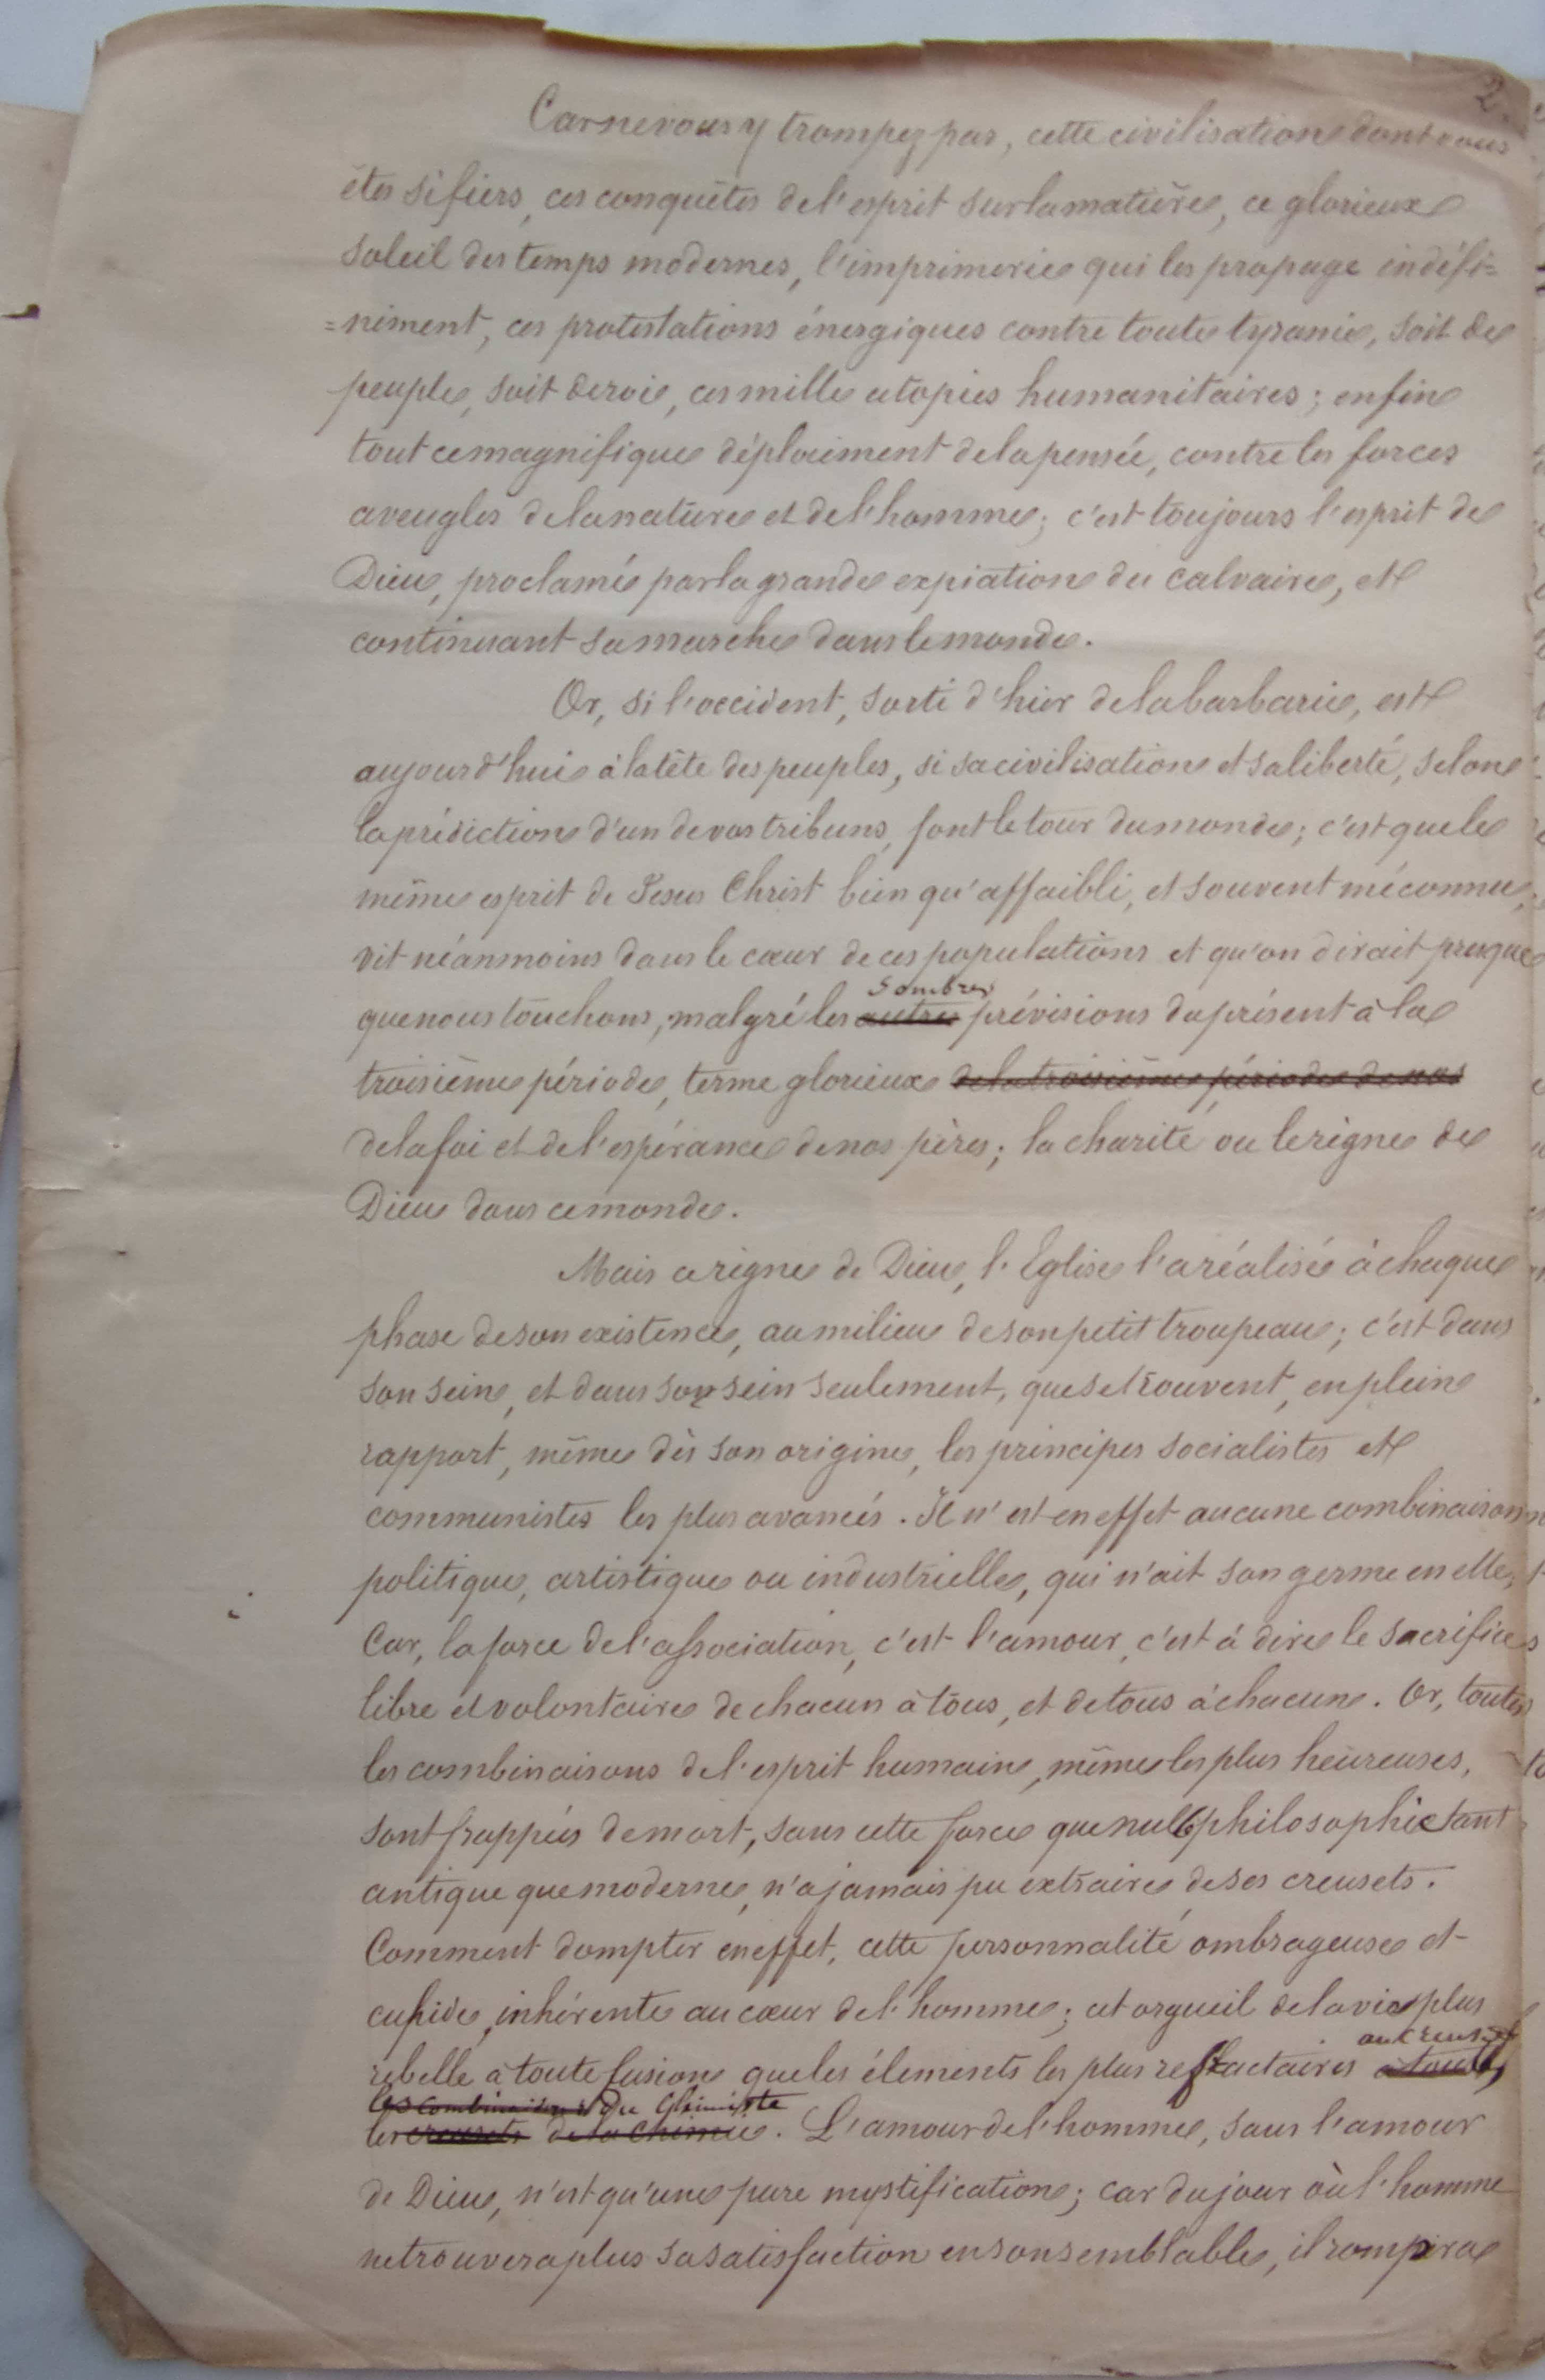 2.
Car ne vous y trompez pas, cette civilisation dont vous
êtes si fiers, ces conquêtes de l'esprit sur la matière, ce glorieux
soleil des temps modernes, l'imprimerie qui les propage indéfi=
=niment, ces protestations énergiques contre toute tyranie, soit de
peuple, soit de rois, ces mille utopies humanitaires; enfin
tout ce magnifique déploiment de la pensée, contre les forces
aveugles de la nature et de l'homme; c'est toujours l'esprit de
Dieu, proclamé par la grande expiation du calvaire, et
continuant sa marche dans le monde.
Or, si l'occident, sorti d'hier de la barbarie, est
aujourd'hui à la tête des peuples, si sa civilisation et sa liberté, selon
la prédiction d'un de vos tribuns, font le tour du monde; c'est que le
même esprit de Jesus Christ bien qu'affaibli, et souvent méconnu,
vit néanmoins dans le cœur de ces populations et qu'on dirait presque
sombres
que nous touchons, malgré les autres prévisions du présent à la
troisième période, terme glorieux de la troisième période de nos
de la foi et de l'espérance de nos pères; la charité ou le règne de
Dieu dans ce monde.
Mais ce règne de Dieu, l'Eglise l'a réalisé à chaque
phase de son existence, au milieu de son petit troupeau; c'est dans
son sein, et dans son sein seulement, que se trouvent, en plein
rapport, même dès son origine, les principes socialistes et
communistes les plus avancés. Il n'est en effet aucune combinaison
politique, artistique ou industrielle, qui n'ait son germe en elle;
Car, la force de l'association, c'est l'amour, c'est à dire le sacrifice
libre et volontaire de chacun à tous, et de tous à chacun. Or, toutes
les combinaisons de l'esprit humain, même les plus heureuses,
sont frappées de mort, sans cette force que nulle philosophie tant
antique que moderne, n'a jamais pu extraire de ses creusets.
Comment dompter en effet, cette personnalité ombrageuse et
cupide, inhérente au cœur de l'homme; cet orgueil de la vie plus
aux creusets
rebelle à toute fusion que les élements les plus refractaires à toutes
les combinaisons du Chimiste
les creusets de la chimie. L'amour de l'homme, sans l'amour
de Dieu, n'est qu'une pure mystification; car du jour où l'homme
ne trouvera plus sa satisfaction en son semblable, il rompra